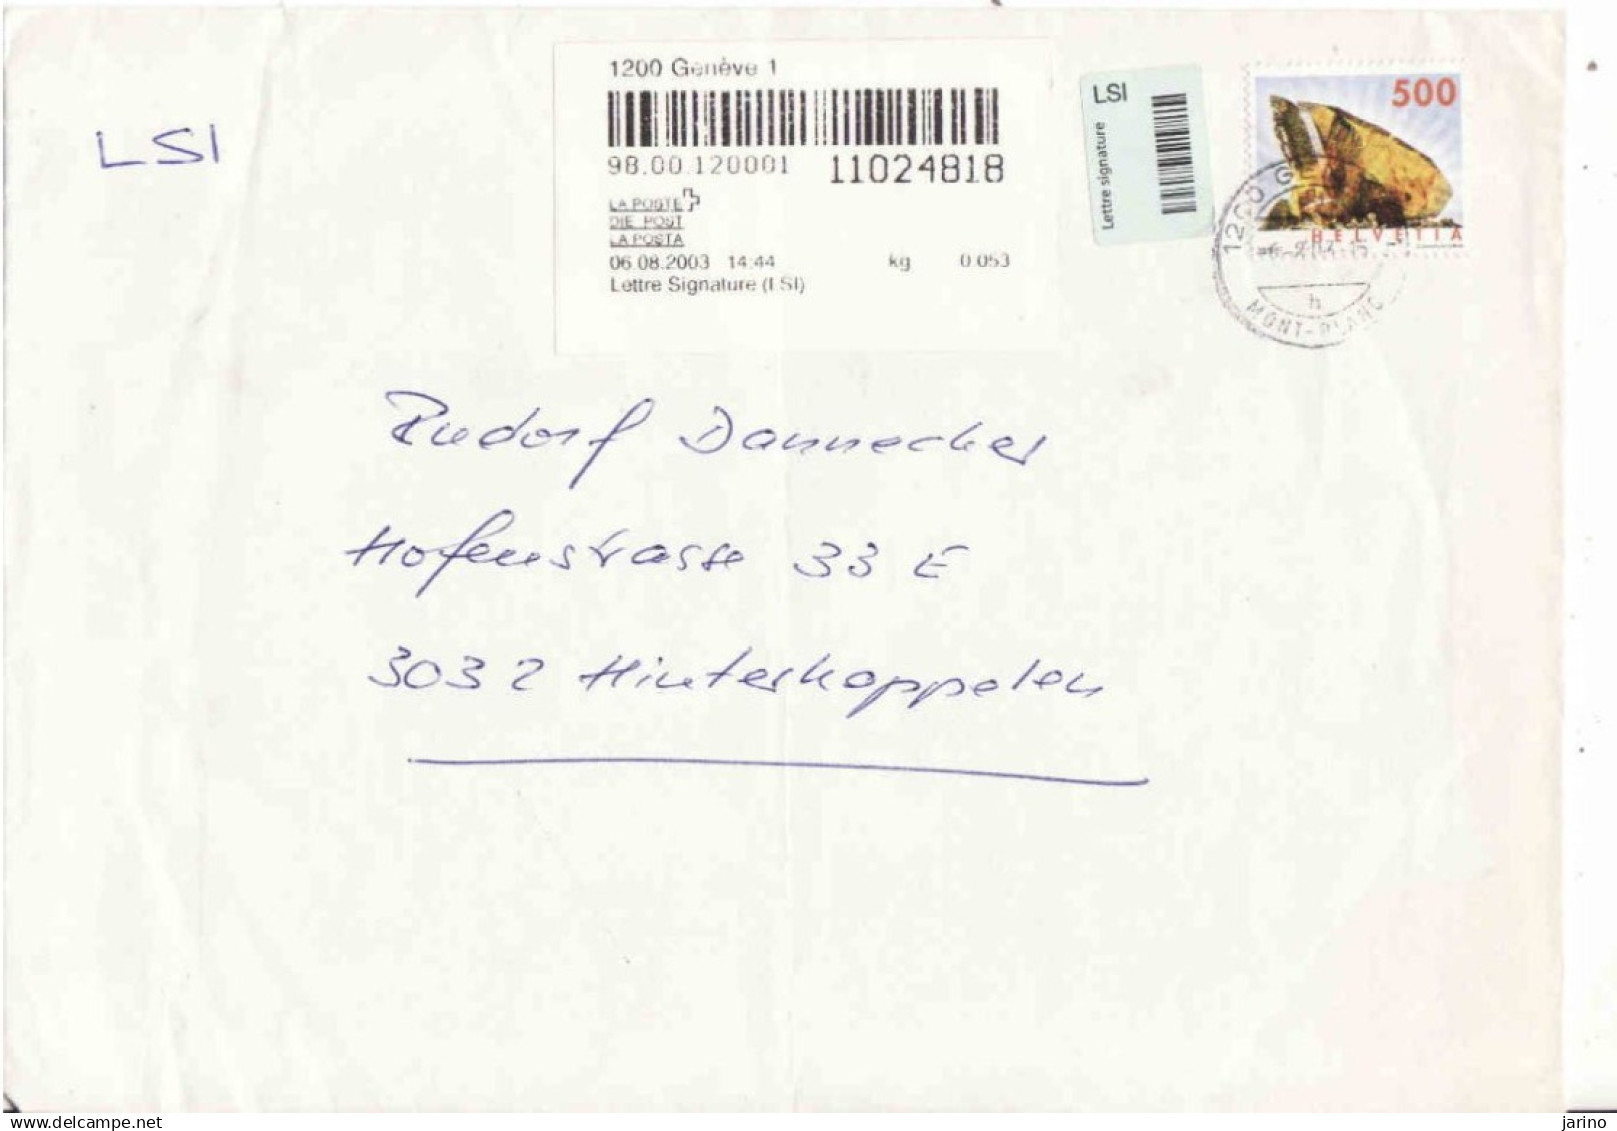 LSI
1200 Genève 1
98.00.120001 11024818
LA POSTE
DIE POST
LA POSTA
06.08.2003 14:44 kg 0.053
Lettre Signature (LSI)
LSI
Lettre signature
500
HELVETIA
1200 G
h
MONT-BLANC
Rudorf Dannecker
Hofenstrasse 33 E
3032 Hinterkappelen
www.delcampe.net
jarino